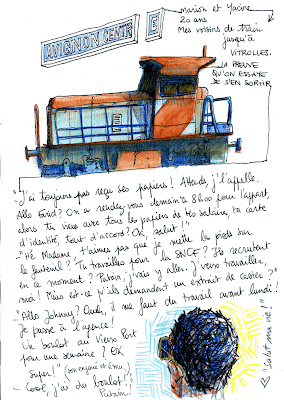 AVIGNON CENTRE E
Marion et Yacine
20 ans
Mes voisins de train
jusqu'à
VITROLLES.
LA PREUVE
QU'ON ESSAYE
DE S'EN SORTIR
"J'ai toujours pas reçu ses papiers! Attends, j'l'appelle.
Allo Farid? On a rendez-vous demain à 8h00 pour l'appart,
alors tu viens avec tous tes papiers de tes salaires, ta carte
d'identité, tout d'accord? OK, salut!"
- "Hé Madame, t'aimes pas que je mette les pieds sur
le fauteuil? Tu travailles pour la SNCF? Ils recrutent
en ce moment? Putain, j'vais y aller. J'veux travailler,
moi! Mais est-ce qu'ils demandent un extrait de casier?"
"Allo Johnny? Ouais, il me faut du travail avant lundi!
Je passe à l'agence!
Un boulot au Vieux Port
pour une semaine? OK
Super!" (ton enjoué et ému)
- Cool, j'ai du boulot!"
Putain!
"Salut ma vie!"